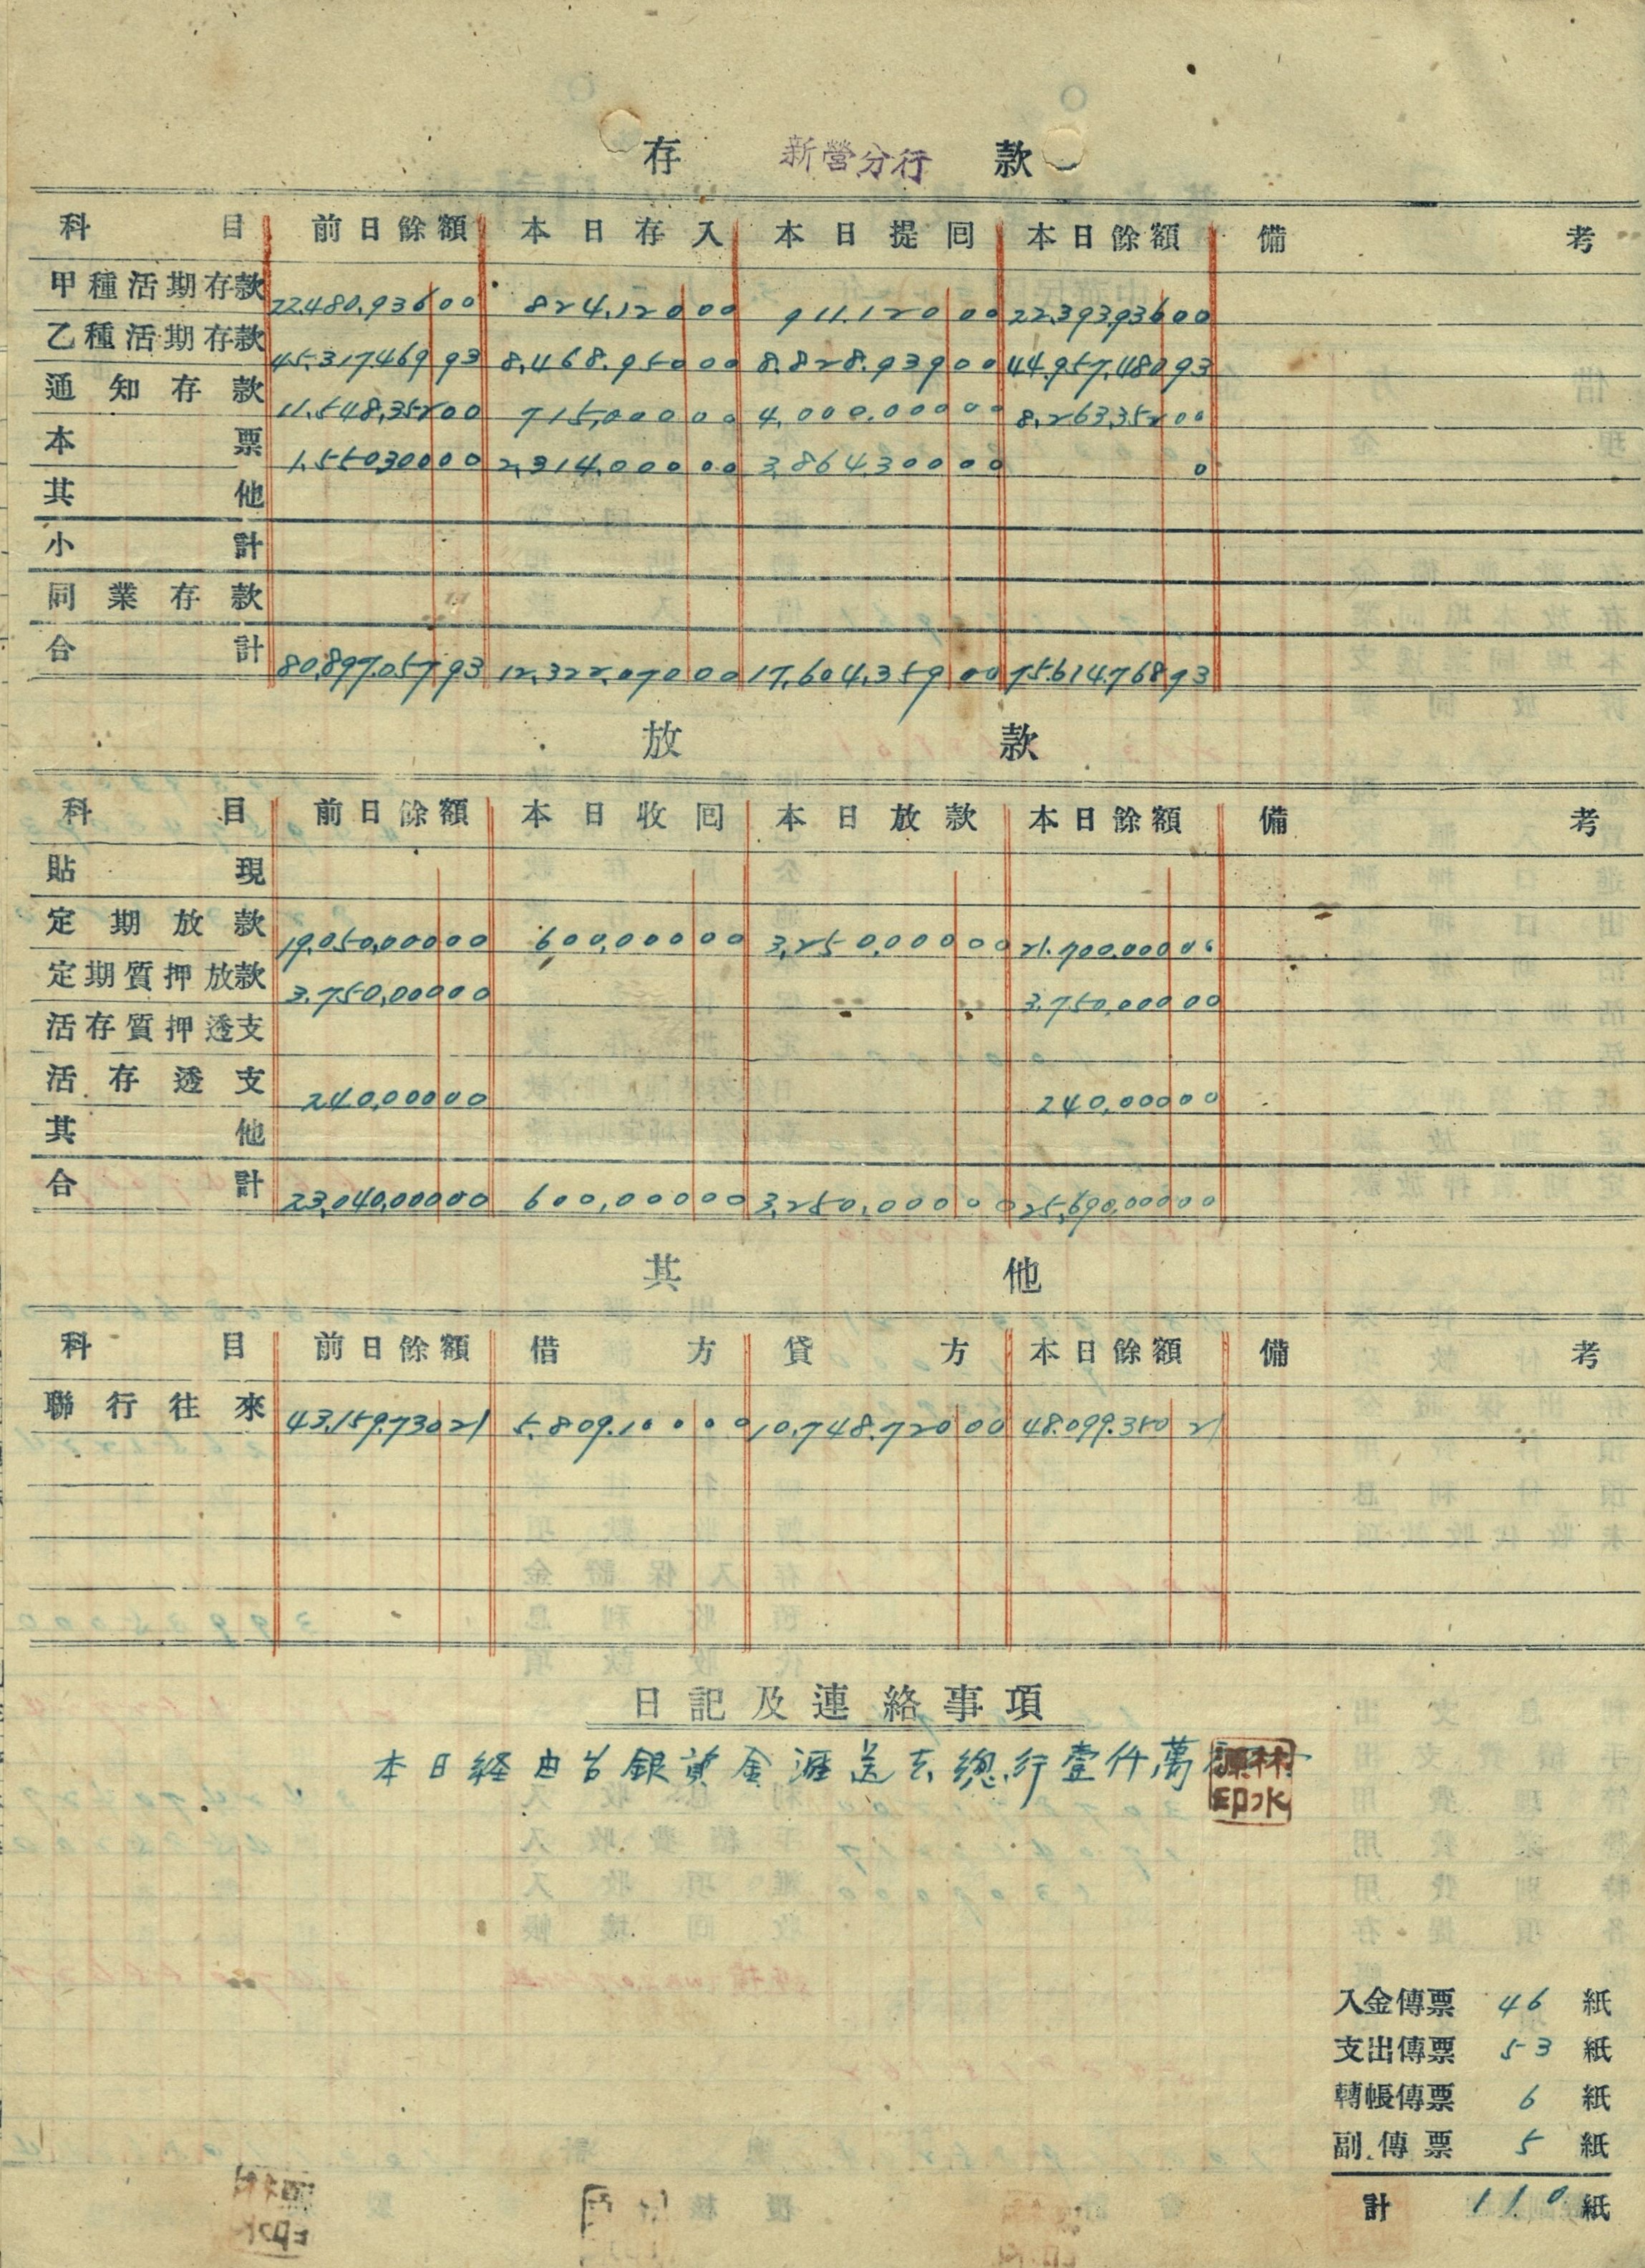 存 新營分行 款
科目 前日餘額 本日存入 本日提囘 本日餘額 備考
甲種活期存款 22,480,936 00 824,120 00 911,120 00 22,393,936 00
乙種活期存款 45,317,469 93 8,468,950 00 8,828,939 00 44,957,480 93
通知存款 11,548,352 00 715,000 00 4,000,000 00 8,263,352 00
本票 1,550,300 00 2,314,000 00 3,864,300 00 0
其他
小計
同業存款
合計 80,897,057 93 12,322,070 00 17,604,359 00 75,614,768 93
放款
科目 前日餘額 本日收囘 本日放款 本日餘額 備考
貼現
定期放款 19,050,000 00 600,000 00 3,250,000 00 21,700,000 00
定期質押放款 3,750,000 00 3,750,000 00
活存質押透支
活存透支 240,000 00 240,000 00
其他
合計 23,040,000 00 600,000 00 3,250,000 00 25,690,000 00
其他
科目 前日餘額 借方 貸方 本日餘額 備考
聯行往來 43,159,730 21 5,809,100 00 10,748,720 00 48,099,350 21
日記及連絡事項
本日経由台銀資金滙送去總行壹仟萬
林水源印
入金傳票 46 紙
支出傳票 53 紙
轉帳傳票 6 紙
副傳票 5 紙
計 110 紙